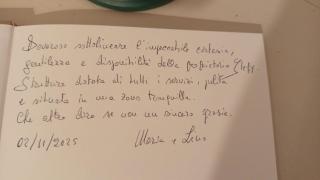 Doveroso sottolineare l'impeccabile cortesia,
gentilezza e disponibilità della proprietaria
Struttura dotata di tutti i servizi, pulita
e situata in una zona tranquilla.
Che altro dire se non un sincero grazie.
02/11/2025 Maria e Lino